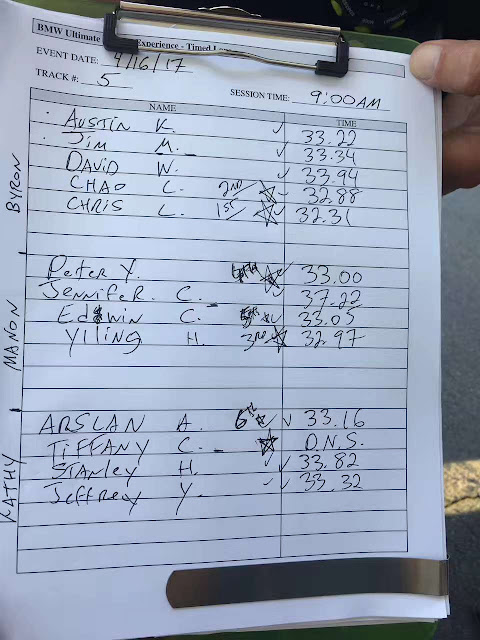 BMW Ultimate Experience - Timed
EVENT DATE: 4/16/17
TRACK #: 5
SESSION TIME: 9:00AM
NAME TIME
BYRON
AUSTIN K. 33.22
Jim M. 33.34
DAVID W. 33.94
CHAO L. 2ND 32.88
CHRIS L. 1ST 32.31
MANON
Peter Y. 33.00
Jennifer. C. 37.22
Edwin C. 33.05
Yiing H. 3RD 32.97
KATHY
ARSLAN A. 6th 33.16
TIFFANY C. D.N.S.
STANLEY H. 33.82
Jeffrey Y. 33.32